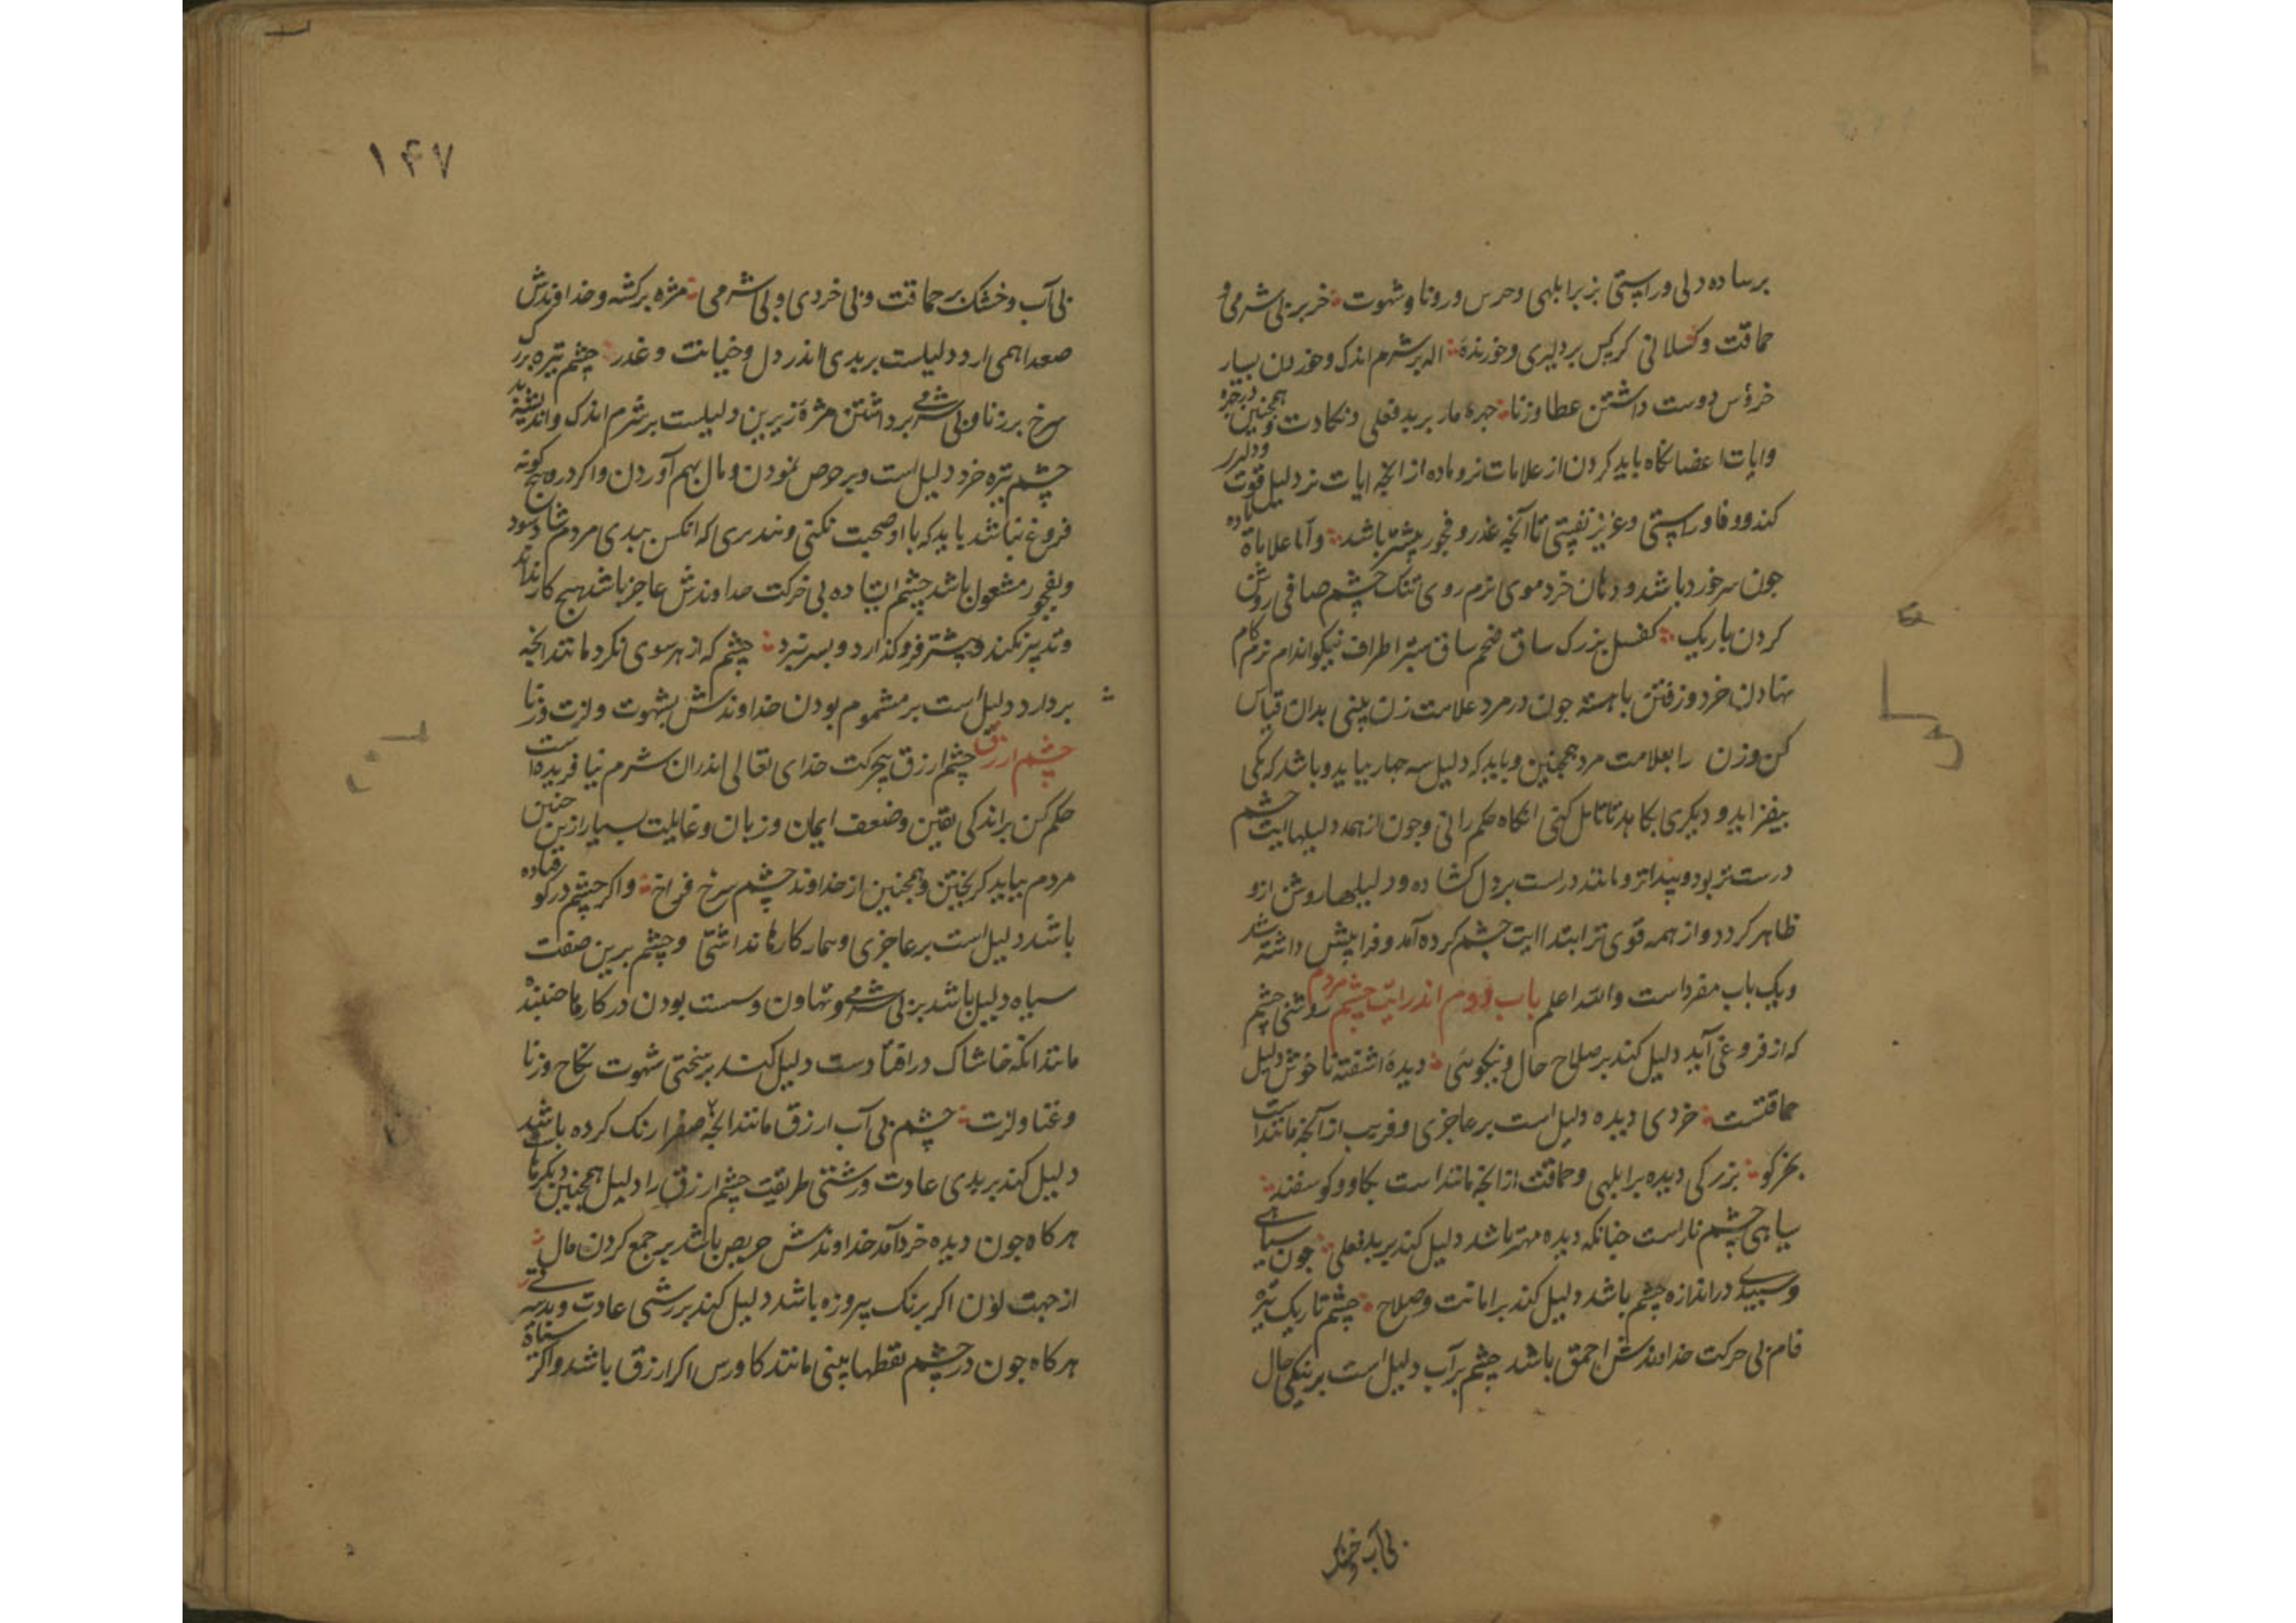 بر ساده دلی و راستی بز بر ابلهی و حرس و رونا و شهوت خر بر بی شرمی و
حماقت و کسلانی کرکس بر دلیری و خورنده اله بر شرم اندک و خوردن بسیار
خروس دوست داشتن عطا وزنا جره مار بر بد فعلی و نکادت و همچنین
وایات اعضا نکاه باید کردن از علامات نر و ماده از انجه ایات نر دلیل قوت و دلیر
کند و وفا و راستی و عزیز نفیستی تا آنجه غدر و فجور بیشتر باشد و اما علاماة ماده
جون سر خورد باشد و دهان خرد موی نرم روی تنک چشم صافی روشن
کردن باریک کفسل بزرک ساق ضخم ساق ستبر اطراف نیکو اندام نرم کام
نهادن خرد و رفتن باهسته جون در مرد علامت زن بینی بدان قیاس
کن و زن را بعلامت مرد همچنین و باید که دلیل سه جهار بیاید و باشد که یکی
بیفزاید و دیکری بکاهد تا تامل کنی انکاه حکم رانی و جون از همه دلیلها ایت چشم
درست تر بود و پیداتر و مانند دراست بر دل کشاده و دلیلها روشن ازو
ظاهر کردد و از همه قوی تر ابتدا ایت چشم کرده آمد و فرا پیش داشته شد
و یک باب مفرد است والله اعلم باب دوم اندر ایت چشم مردم روشنی چشم
که از فروغی آید دلیل کند بر صلاح حال و نیکوئی دیده اشفته ناخوش دلیل
حماقتست خردی دیده دلیل است بر عاجزی و فریب از آنجه مانند است
بخرکو بزرکی دیده بر ابلهی و حماقت از انجه مانند است بکاو و کوسفند
سیاهی چشم نار است جنانکه دیده مهتر باشد دلیل کند بر بد فعلی جون سیاهی
و سپیدی در اندازه چشم باشد دلیل کند بر امانت و صلاح چشم تاریک تیره
فام بی حرکت خداوندش احمق باشد چشم بر آب دلیل است بر نیکی حال
بی آب و خشک
۱۴۷
بی آب و خشک بر حماقت و بی خردی و بی شرمی مژه برکشه و خداوندش
صعداهمی ارد دلیلست بر بدی اندر دل و خیانت و غدر چشم تیره بزرک
سرخ بر زنا و بی شرمی برداشتن مژه زیرین دلیلست بر شرم اندک و بد اندیشه
چشم تیره خرد دلیل است و بر حرص نمودن و مال بهم آوردن و اکر در وی هیچ کونه
فروغ نباشد باید که با او صحبت نکنی و نندیری که انکس ببدی مردم شاد شود
و بفجور مشغول باشد چشم ایستاده بی حرکت خداوندش عاجز باشد هیچ کار نداند
و تدبیر نکند و پیشتر فرو کذارد و بسر نبرد چشم که از هر سوی نکرد مانند انجه
بردارد دلیل است بر مشموم بودن خداوندش بشهوت و لزت و زنا
چشم ارزق چشم ارزق بیحرکت خدای تعالی اندران شرم نیافریده است
حکم کن بر اندکی یقین و ضعف ایمان و زبان و غایلیت بسیار ازین جنین
مردم بباید کریختن و همچنین از خداوند چشم سرخ فراخ و اکر چشم در کو فتاده
باشد دلیل است بر عاجزی و سهار کارها نداشتی و چشم برین صفت
سیاه دلیل باشد بر بی شرمی و تهاون و سست بودن در کارها
مانند انکه خاشاک در افتادست دلیل کند بر سختی شهوت نکاح وزنا
و غنا و لزت چشم بی آب ارزق مانند انجه صفرا رنک کرده باشد
دلیل کند بر بدی عادت و زشتی طریقت چشم ارزق را دلیل همچنین دیکرها
هرکاه جون دیده خرد آمد خداوندش حریص باشد بر جمع کردن مال
از جهت لون اکر برنک پیروزه باشد دلیل کند بر زشتی عادت و
هرکاه جون در چشم نقطها بینی مانند کاورس اکر ارزق باشد و اکر سیاه